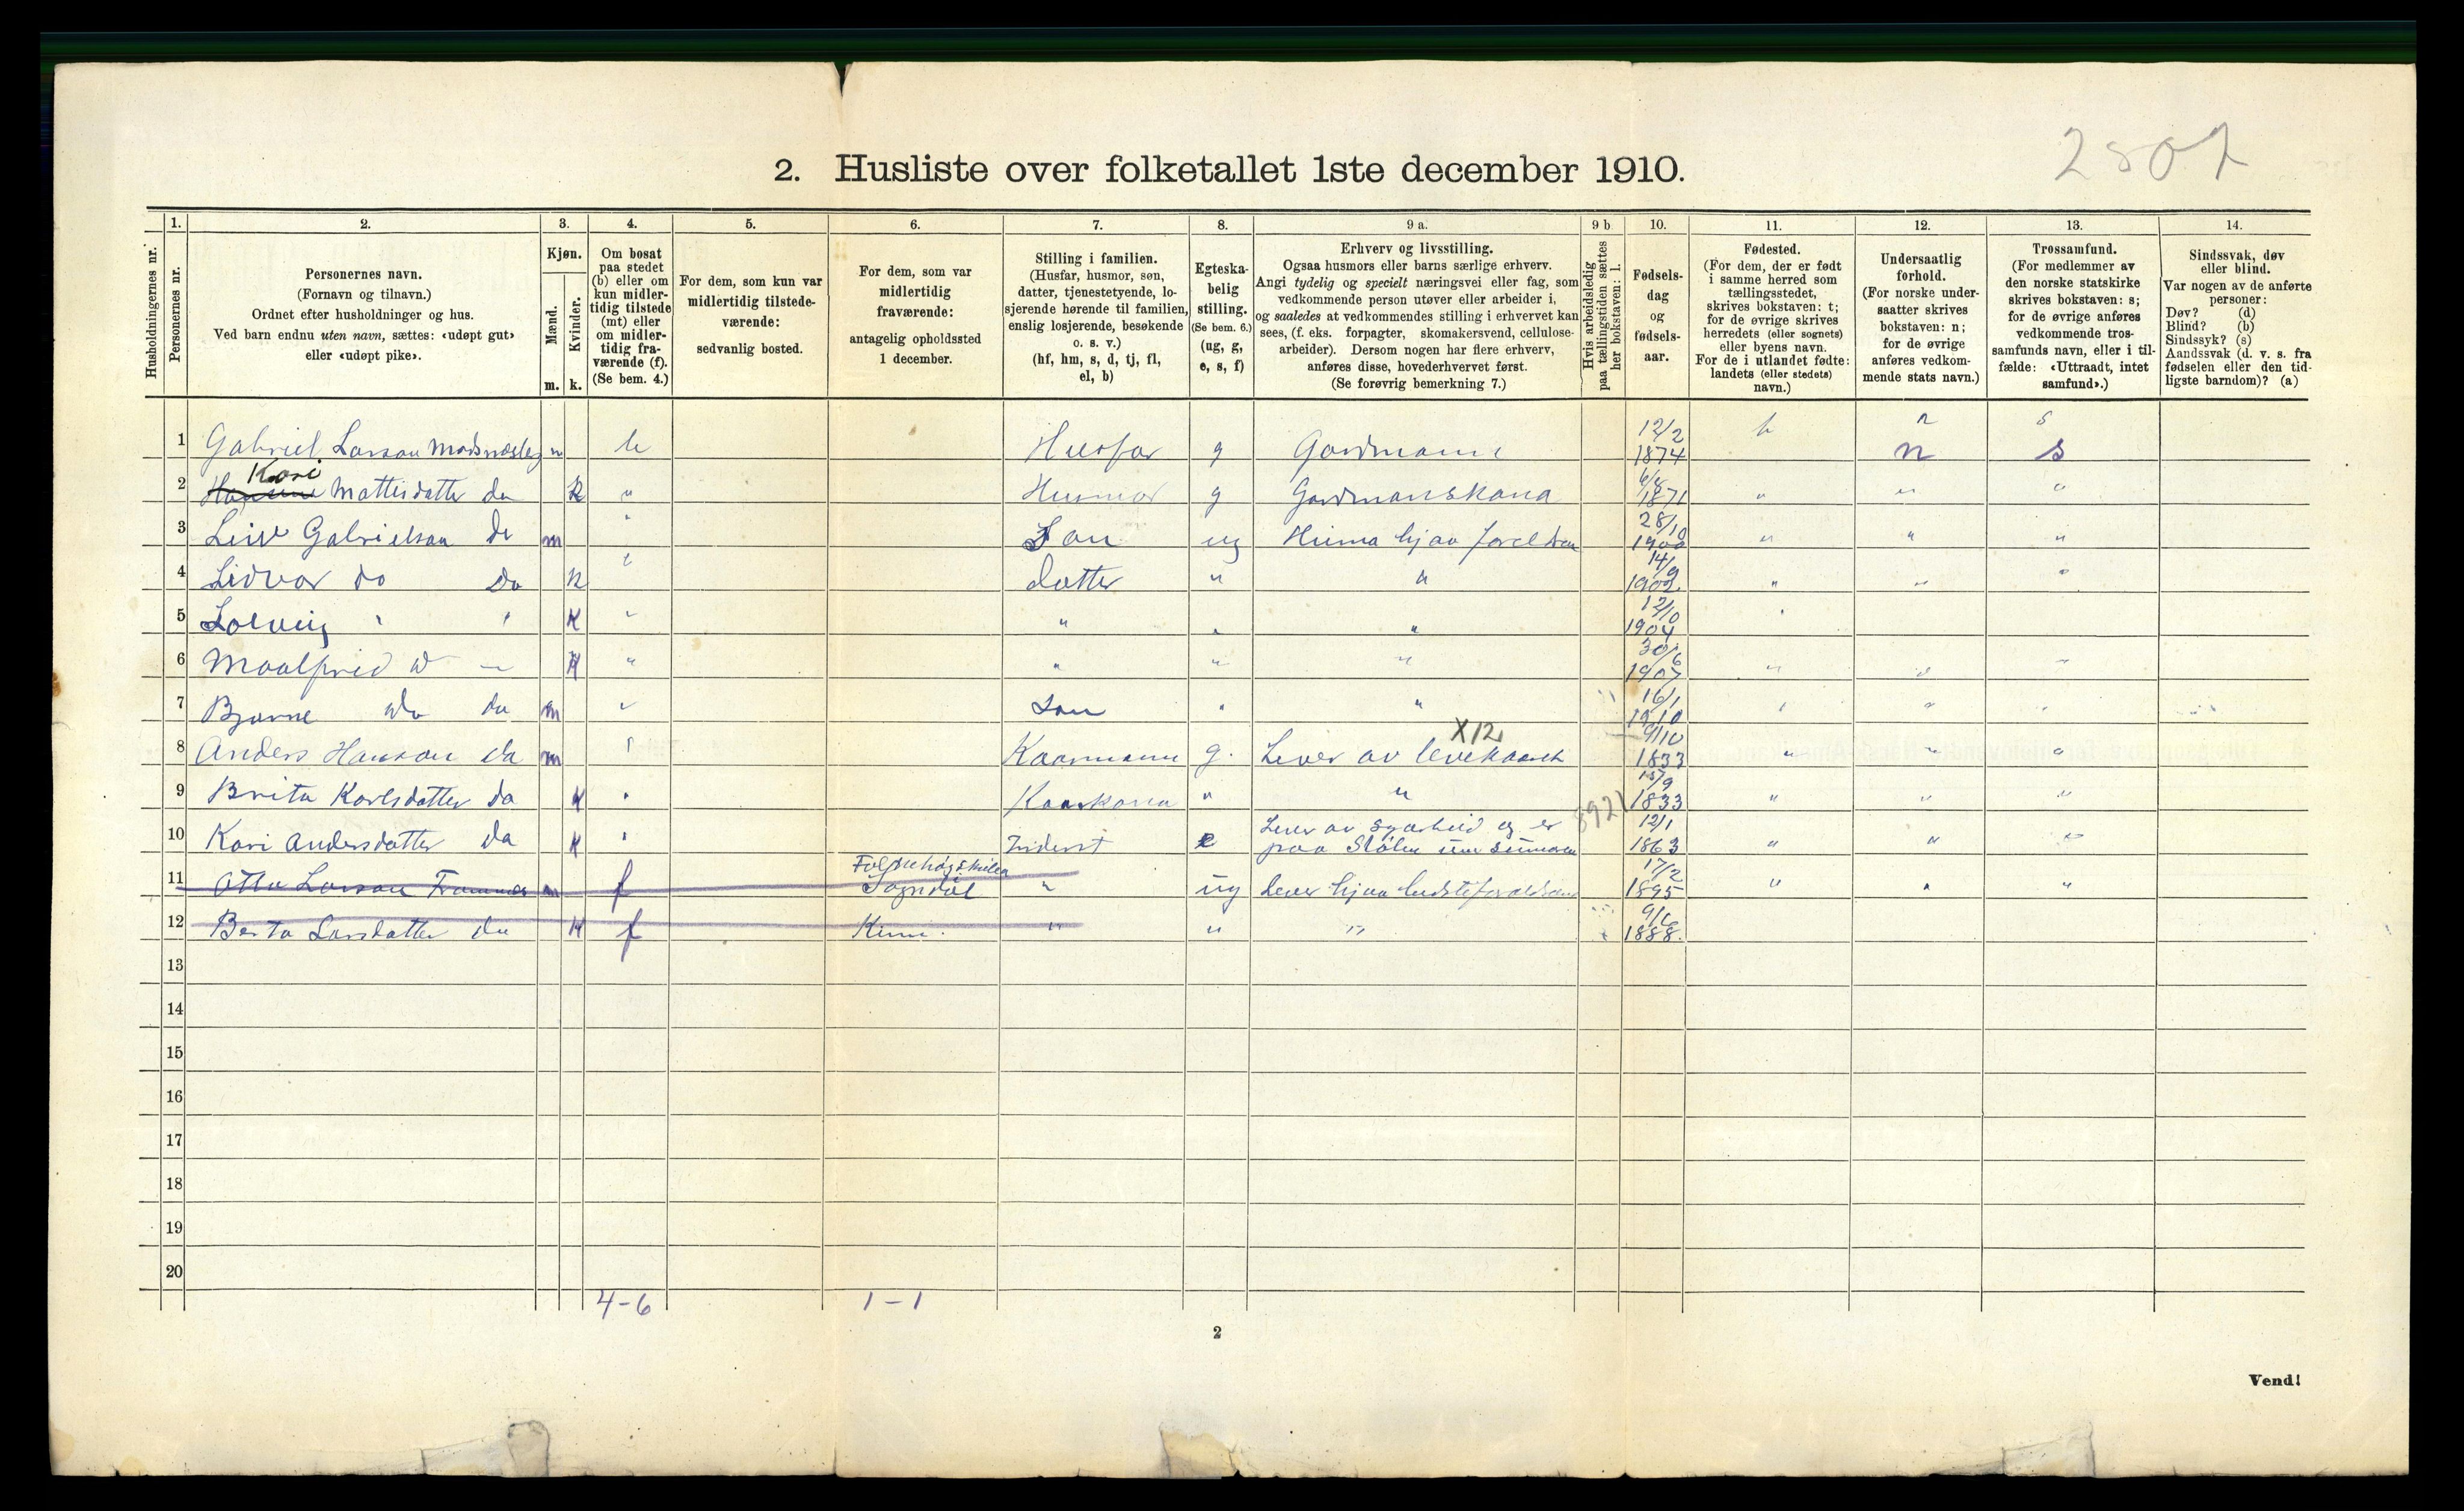 2. Husliste over folketallet 1ste december 1910.
Husholdningernes nr.
1. Personernes nr.
2.
Personernes navn.
(Fornavn og tilnavn.)
Ordnet efter husholdninger og hus.
Ved barn endnu uten navn, sættes: «udøpt gut»
eller «udøpt pike».
3.
Kjøn.
Mænd. Kvinder.
m. k.
4.
Om bosat
paa stedet
(b) eller om
kun midler-
tidig tilstede
(mt) eller
om midler-
tidig fra-
værende (f).
(Se bem. 4.)
5.
For dem, som kun var
midlertidig tilstede-
værende:
sedvanlig bosted.
6.
For dem, som var
midlertidig
fraværende:
antagelig opholdssted
1 december.
7.
Stilling i familien.
(Husfar, husmor, søn,
datter, tjenestetyende, lo-
sjerende hørende til familien,
enslig losjerende, besøkende
o. s. v.)
(hf, hm, s, d, tj, fl,
el, b)
8.
Egteska-
belig
stilling.
(Se bem. 6.)
(ug, g,
e, s, f)
9 a.
Erhverv og livsstilling.
Ogsaa husmors eller barns særlige erhverv.
Angi tydelig og specielt næringsvei eller fag, som
vedkommende person utøver eller arbeider i,
og saaledes at vedkommendes stilling i erhvervet kan
sees, (f. eks. forpagter, skomakersvend, cellulose-
arbeider). Dersom nogen har flere erhverv,
anføres disse, hovederhvervet først.
(Se forøvrig bemerkning 7.)
9 b
Hvis arbeidsledig
paa tællingstiden sættes
her bokstaven: l.
10.
Fødsels-
dag
og
fødsels-
aar.
11.
Fødested.
(For dem, der er født
i samme herred som
tællingsstedet,
skrives bokstaven: t;
for de øvrige skrives
herredets (eller sognets)
eller byens navn.
For de i utlandet fødte:
landets (eller stedets)
navn.)
12.
Undersaatlig
forhold.
(For norske under-
saatter skrives
bokstaven: n;
for de øvrige
anføres vedkom-
mende stats navn.)
13.
Trossamfund.
(For medlemmer av
den norske statskirke
skrives bokstaven: s;
for de øvrige anføres
vedkommende tros-
samfunds navn, eller i til-
fælde: «Uttraadt, intet
samfund».)
14.
Sindssvak, døv
eller blind.
Var nogen av de anførte
personer:
Døv? (d)
Blind? (b)
Sindssyk? (s)
Aandssvak (d. v. s. fra
fødselen eller den tid-
ligste barndom)? (a)
1 Gabriel Larson m Husfar g Gardmann 12/2 1874 n s
2 Kari Mattisdatter do k " Husmor g Gardmanskona 1871 " " "
3 Gabrielson do m " Son ug Heima hjaa foreldran 28/10 1900 " " "
4 Lidvar do do k " Datter " " 14/9 1902 " " "
5 Solveig " " k " " " " 12/10 1904 "
6 Maalfrid do k " " " " 30/6 1907 " " "
7 Bjarne do do m " Son " " 16/1 1910 " " "
X12
8 Anders Hanson do m " Kaarmann g. Lever av levekaarek 9/10 1833 " " "
9 Brita Karlsdatter do k " Kaarkona " " 1833 " " "
10 Kari Andersdatter do k " e Lever av syarbeid og er paa Stølen um sumaren 8921 12/1 1863 " " "
11 Otto Larson m f Folkehøgskulen Sogndal " ug Lever hjaa 17/2 1895 " " "
12 Berta Larsdatter do k f Kinn. " " " 1888.
13
14
15
16
17
18
19
20
4-6 1-1
2
Vend!